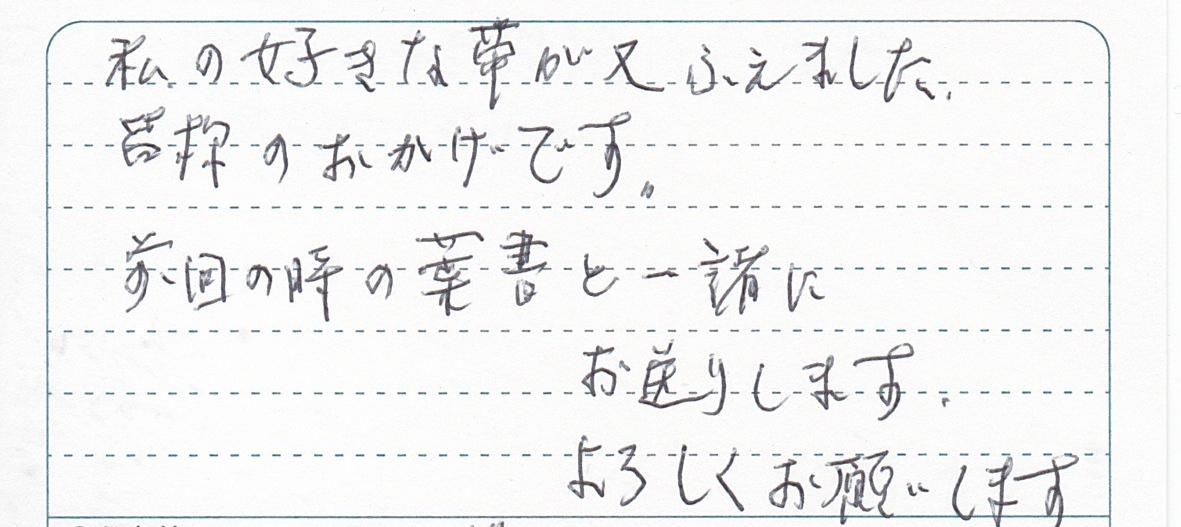 私の好きな帯が又ふえました.
のおかげです。
前回の時の葉書と一緒に
お送りします.
よろしくお願いします